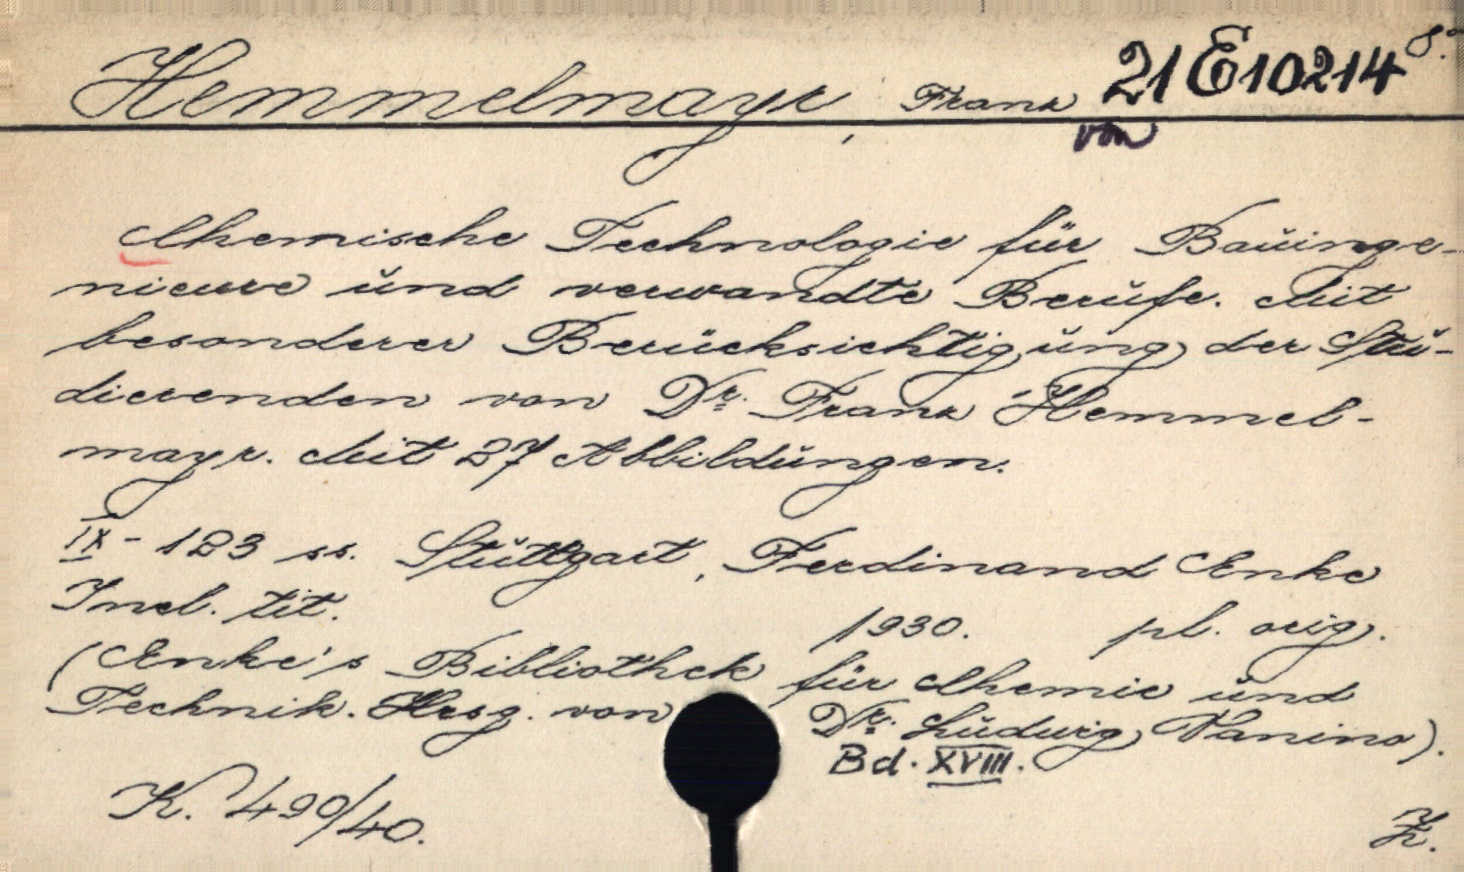 Hemmelmayr, Franz 21 E 10214 8°
von
Chemische Technologie für Bauinge-
nieure und verwandte Berufe. Mit
besonderer Berücksichtigung der Stu-
dierenden von Dr. Franz Hemmel-
mayr. Mit 27 Abbildungen.
IX - 123 ss. Stuttgart, Ferdinand Enke
Incl. tit. 1930. pl. orig.
(Enke's Bibliothek für Chemie und
Technik. Hrsg. von Dr. Ludwig Vanino).
Bd. XVIII.
K. 490/40.